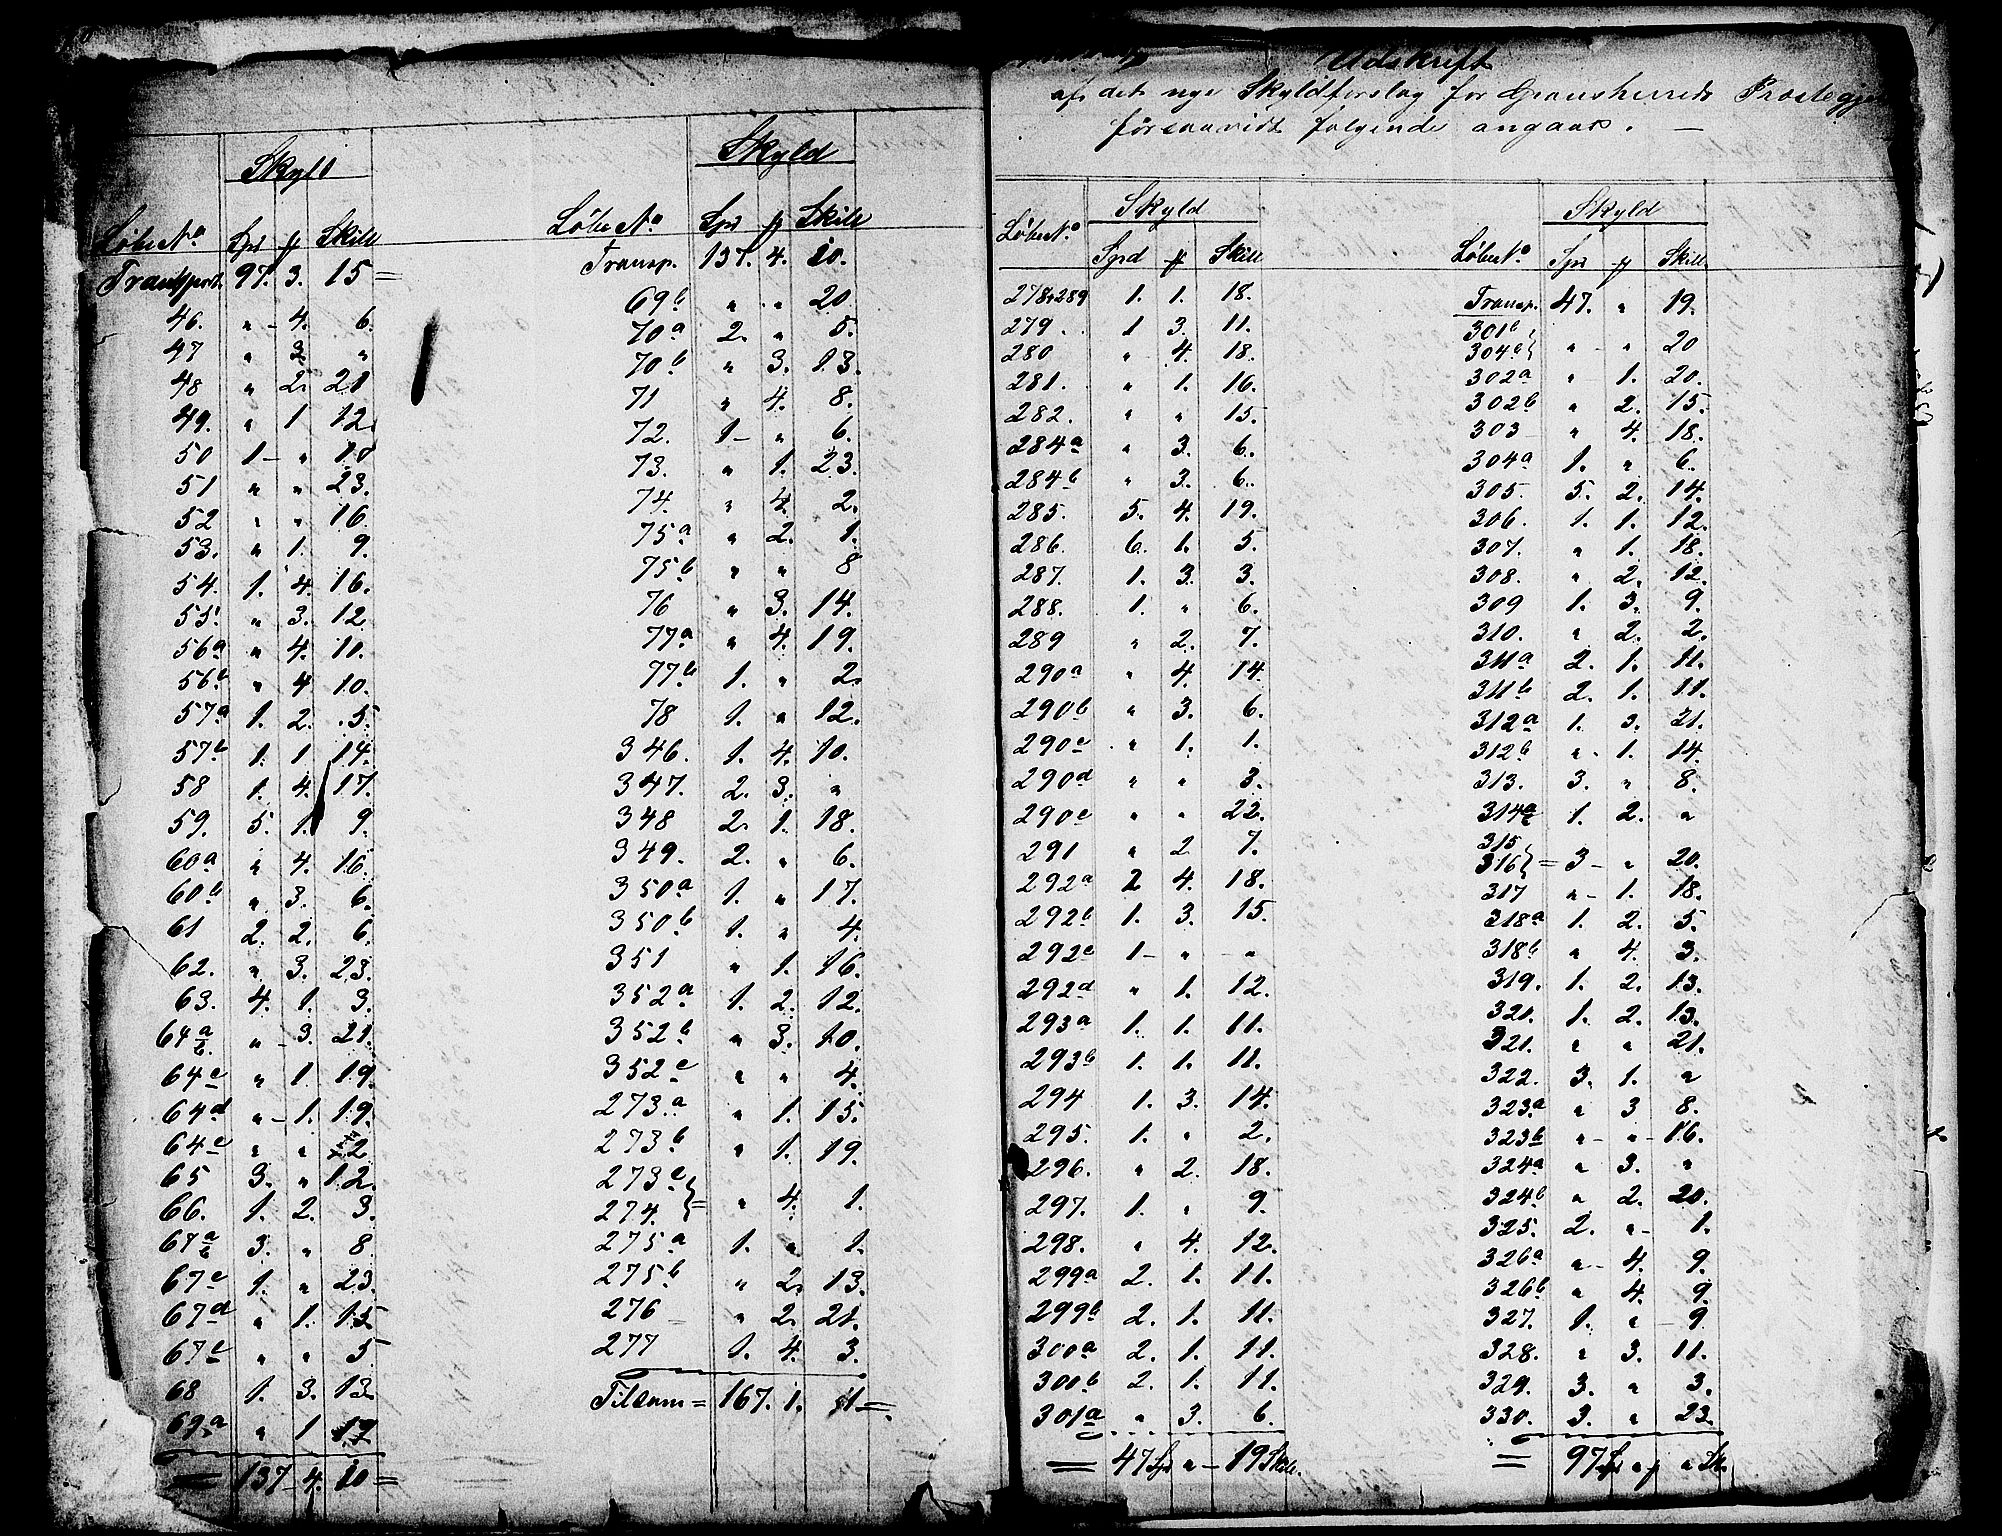 Skyld
Løbe No Spd ƒ Skill
Transport. 97. 3. 15 =
46. " - 4. 6.
47 " 3. "
48 " 2. 21
49. " 1 12.
50 1- " 10
51 " " 23.
52 " " 16.
53. " 1. 9.
54. 1. 4. 16.
55. " 3. 12.
56a " 4. 10.
56b " 4 10.
57a 1. 2. 5.
57b 1. 1 14.
58 1. 4. 17.
59. 5. 1. 9.
60a " 4. 16.
60b " 3. 6.
61 2. 2. 6.
62. " 3. 23.
63. 4. 1. 3.
64a b. " - 3. 21.
64c " 1. 19.
64d " - 1. 19.
64e " " 2
65 3. " 12.
66. 1. 2. 3.
67a b 3. " 8.
67c 1. " 23.
67d " 1. 15
67e " " 5
68 1. 3. 13.
69a " 1 17
= 137 - 4. 10 =
Skyld
Løbe No Spd ƒ Skill
Transp. 137. 4. 10.
69b " " 20.
70a 2. " 5.
70b " 3. 13.
71 " 4. 8.
72. 1- " 6.
73. " 1. 23.
74. " 4. 2.
75a " 2. 1.
75b " " 8
76 " 3. 14.
77a " 4. 19.
77b 1. " 2.
78 1. " 12.
346. 1. 4. 10.
347. 2. 3. "
348 2. 1. 18.
349. 2. " 6.
350a 1. " 17.
350b 1. " 4.
351 " 1. 16.
352a 1. 2. 12.
352b " 3. 10.
352c " " 4.
273.a " 1. 15.
273b " 1. 19.
273c
274. } = " 4. 1.
275a 1. " 1.
275b " 2. 13.
276 " 2. 21.
277 1. 4. 3.
Tilsam = 167. 1. 11 =.
Udskrift
af det nye Skyldforslag for Granskerreds Præstegj
forsaavidt følgende angaar. —
Skyld
Løbe No Spd ƒ Skill
278 & 289 1. 1. 18.
279. 1 3. 11.
280 " 4. 18.
281. " 1. 16.
282. " " 15.
284a " 3. 6.
284b " 3. 6.
285. 5. 4. 19.
286. 6. 1. 5.
287. 1. 3. 3.
288. 1. " 6.
289 " 2. 7.
290a " 4. 14.
290b " 3. 6.
290c " 1. 1.
290d " " 3.
290e " " 22.
291 " 2 7.
292a 2 4. 18.
292b 1. 3. 15.
292c 1- " - "
292d " 1. 12.
293a 1. 1. 11.
293b 1. 1. 11.
294 1. 3. 14.
295. 1. " 2.
296. " 2. 18.
297. 1. " 9.
298. " 4. 12.
299a 2. 1. 11.
299b 2. 1. 11.
300a 2. 1. 11.
300b 2. 1. 11.
301a " 3. 6.
= 47 Spd " - 19 Skill.
Skyld
Løbe No Spd ƒ Skill.
Transp. 47. " 19.
301b
304b } " - " 20
302a " 1. 20.
302b " 2. 15.
303 " 4. 18.
304a 1. " 6.
305. 5. 2. 14.
306. 1. 1. 12.
307. " 1. 18.
308. " 2. 12.
309 1. 3. 9.
310. " 2. 2.
311a 2. 1. 11.
311b 2. 1. 11.
312a 1. 3. 21.
312b " - 1. 14.
313. 3. " 8.
314a 1. 2. "
315
316 } = 3 - " 20.
317 " - 1. 18.
318a 1. 2. 5.
318b " 4. 3.
319. 1. 2. 13.
321. 1. 2. 13.
321. " " 21.
322. 3. 1. "
323.a " 3 8.
323b " - " - 16.
324a " 3. "
324b " 2. 20.
325. 2. " - 1.
326a " - 4. 9.
326b " 4. 9.
327. 1. " - 9.
328. " 3. 11.
329. 3. " 3.
330. 3. " 23.
= 97 Spd " ƒ " Sk.